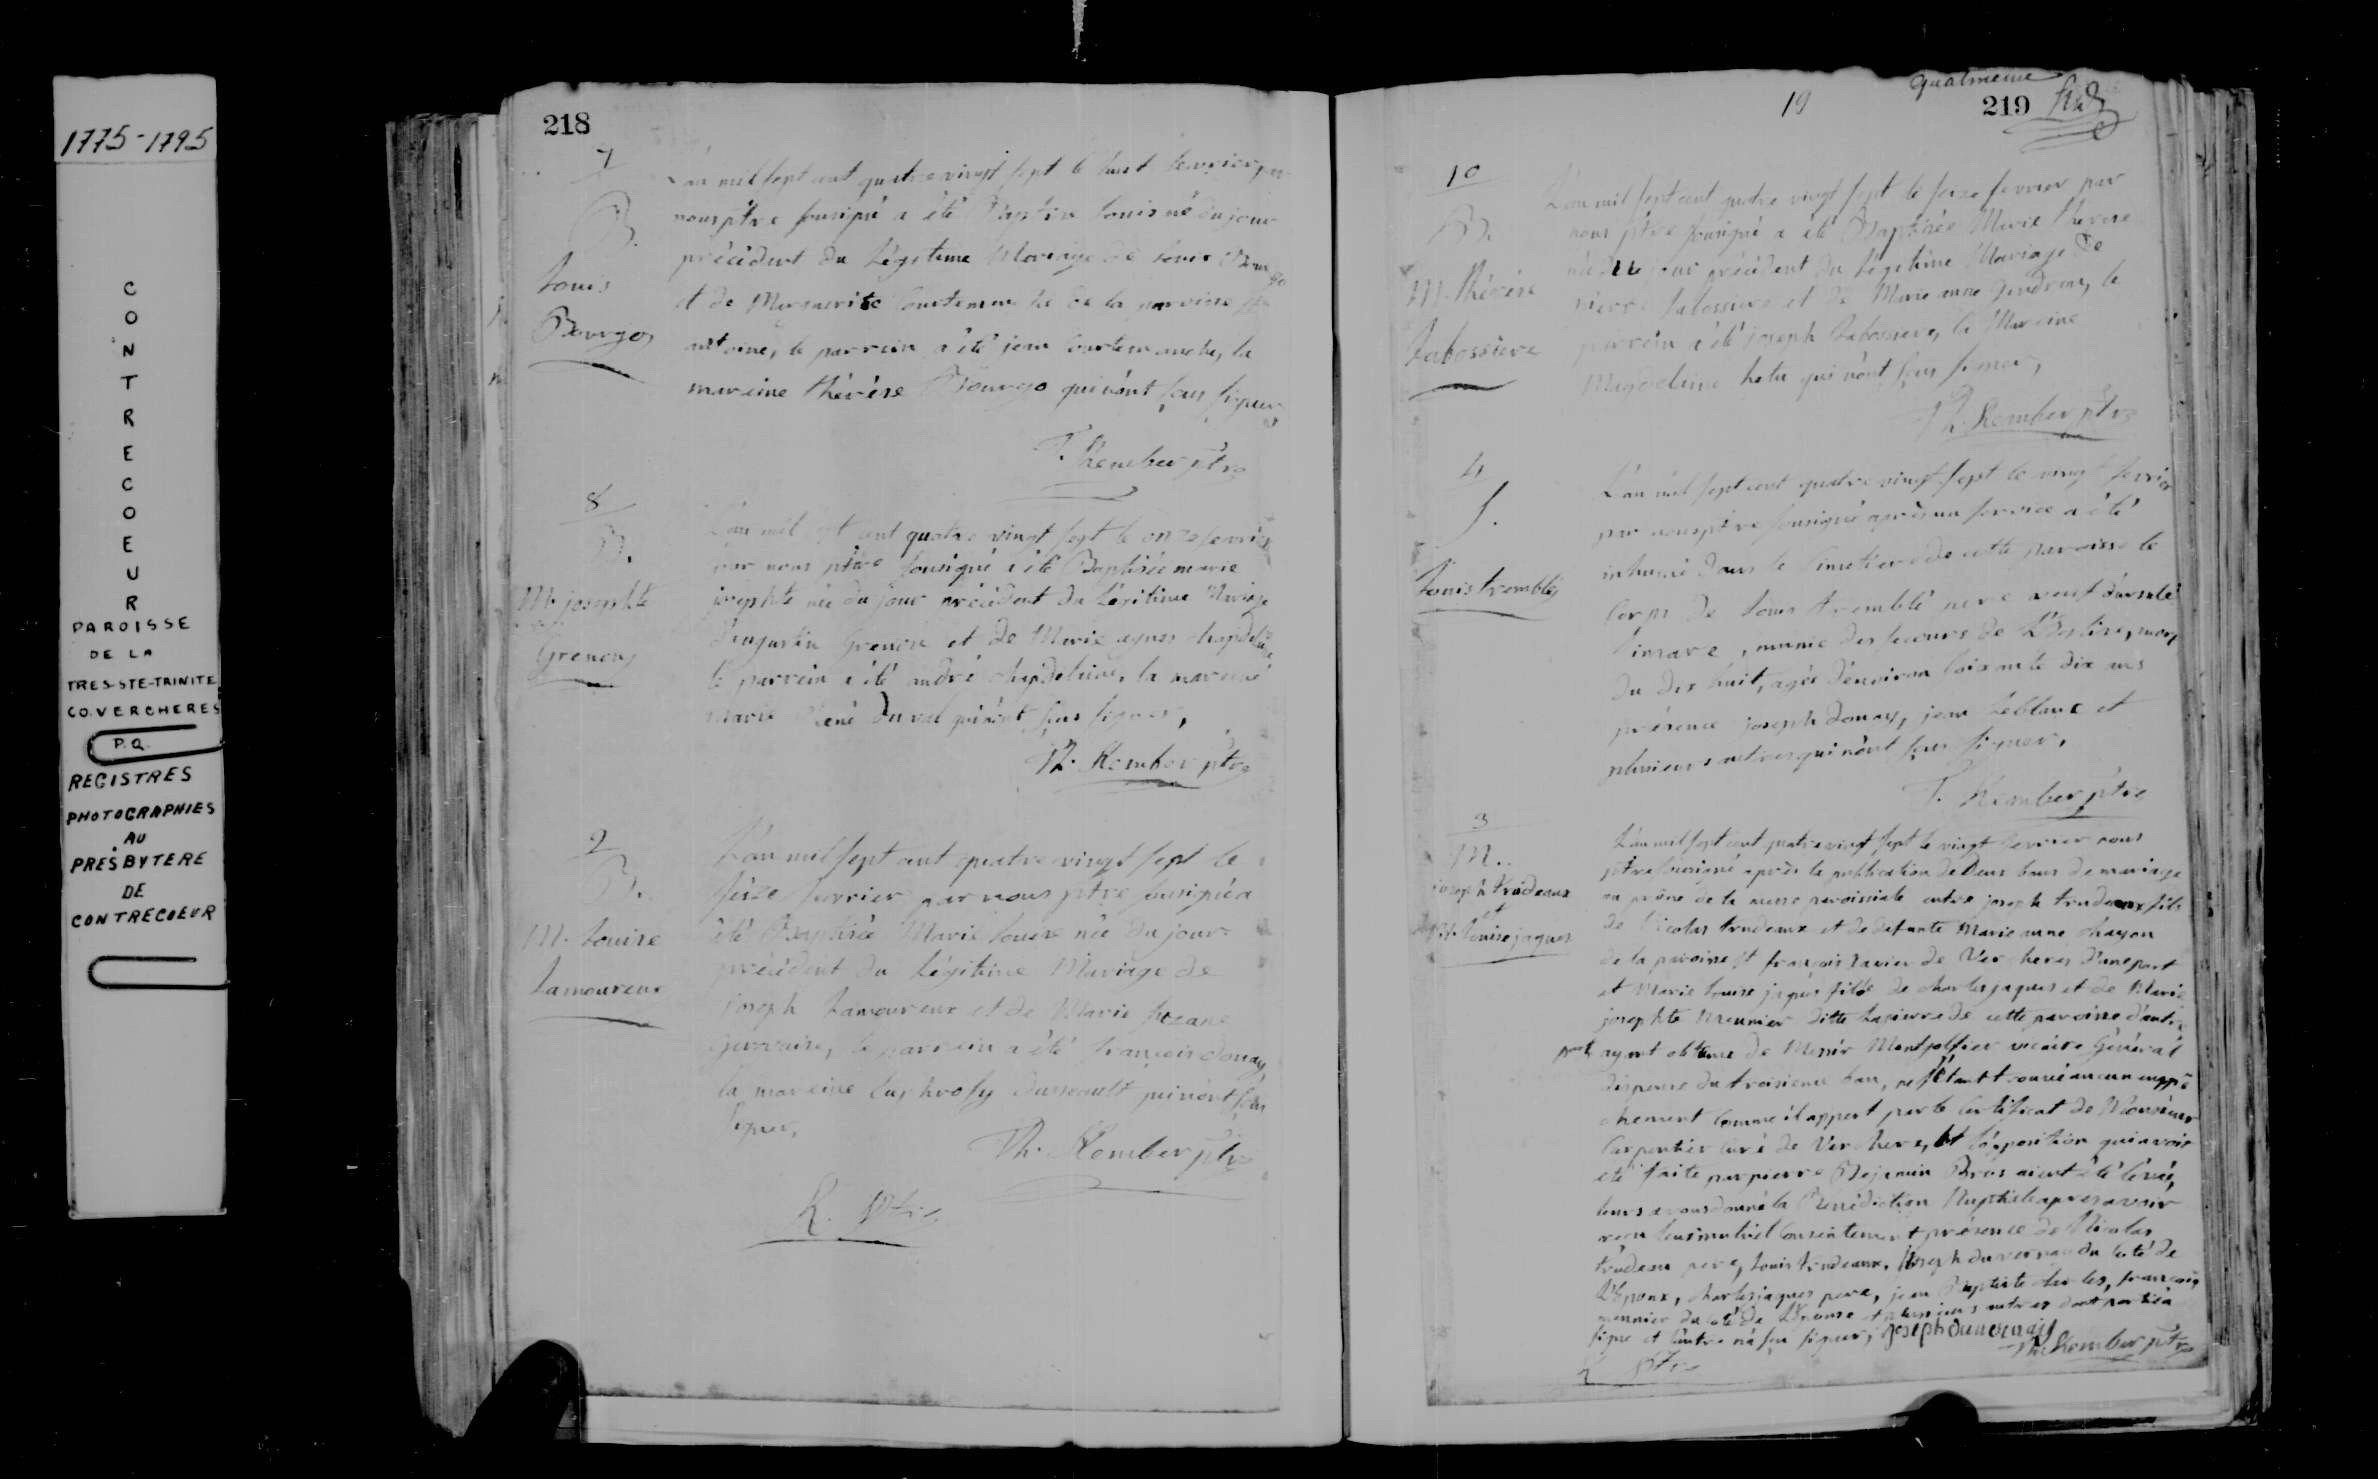 1775-1795
CONTRECOEUR
PAROISSE
DE LA
TRES-STE-TRINITE
CO. VERCHERES
P.Q.
REGISTRES
PHOTOGRAPHIES
AU
PRESBYTERE
DE
CONTRECOEUR
218
7
B.
Louis
Bourgo
L'an mil sept cent quatre vingt sept le huit fevrier par
nous ptre sousigné a été Baptisé Louis né du jour
précédent du Légitime Mariage de Louis Bourgo
et de Marguerite Courtemanche de la paroisse St
antoine, le parrein a été jean Courtemanche, la
mareine thérèse Bourgo qui n'ont sçus signer
T. Kember ptre
8
B.
M. josephte
Grenon
L'an mil sept cent quatre vingt sept le onze fevrier
par nous ptre sousigné a été Baptisée marie
josephte née du jour précédent du Légitime Mariage
d'augustin Grenon et de Marie agnes chapdelaine
le parrein a été andré chapdelaine, la mareine
marie René Duval qui n'ont sçus signer,
Th. Kember ptre
9
B.
M. Louise
Lamoureux
L'an mil sept cent quatre vingt sept le
seize fevrier par nous ptre sousigné a
été Baptisée Marie Louise née du jour
précédent du Légitime Mariage de
joseph Lamoureux et de Marie suzane
Gervaise, le parrein a été françois donay,
la mareine Dussault qui n'ont sçus
signer,
Th. Kember ptre
K. ptre
qualrieme
19
219
10
B.
M. thérèse
Labossiere
L'an mil sept cent quatre vingt sept le seize fevrier par
nous ptre sousigné a été Baptisée Marie thérèse
née du jour précédent du Légitime Mariage de
pierre Labossiere et de Marie anne Gendron, le
parrein a été joseph Labossiere, la Mareine
Magdeleine hetu qui n'ont sçus signer,
Th. Kember ptre
4
S.
Louis tremblé
L'an mil sept cent quatre vingt sept le vingt fevrier
par nous ptre sousigné après un service a été
inhumé dans le Cimetiere de cette paroisse le
Corps de Louis tremblé pere veuf
munie des secours de L'Eglise, mort
du dix huit, agé d'environ soixante dix ans
présence joseph donay, jean Leblanc et
plusieurs autres qui n'ont sçus signer,
T. Kember ptre
3
M.
joseph trudeaux
et
M. Louise jaques
L'an mil sept cent quatre vingt sept le vingt fevrier nous
ptre sousigné après la publication de Deux bans de mariage
au prône de la messe paroissiale entre joseph trudeaux fils
de Nicolas trudeaux et de defunte Marie anne chagon
de la paroisse St françois Xavier de Vercheres d'une part
et Marie Louise jaques fille de charles jaques et de Marie
josephte Meunier ditte Lapierre de cette paroisse d'autre
part ayant obtenue de Messir Montgolfier vicaire Général
dispense du troisieme ban, ne s'étant trouvé aucun empê
chement Comme il appert par le Certificat de Monsieur
Carpentier Curé de Vercheres, et L'opposition qui avoit
été faite par pierre Bejamin Bros aient été levée,
leurs avons donné la Benédiction Nuptiale après avoir
reçu leur mutüel Consentement présence de Nicolas
trudeau pere, Louis trudeaux, joseph duvernay du Coté de
L'Epoux, charles jaques pere, jean Baptiste françois
meunier du Coté de L'Epouse et plusieurs autres dont partie a
signé et L'autre n'a sçu signer, joseph duvernay
Th. Kember ptre
K ptre